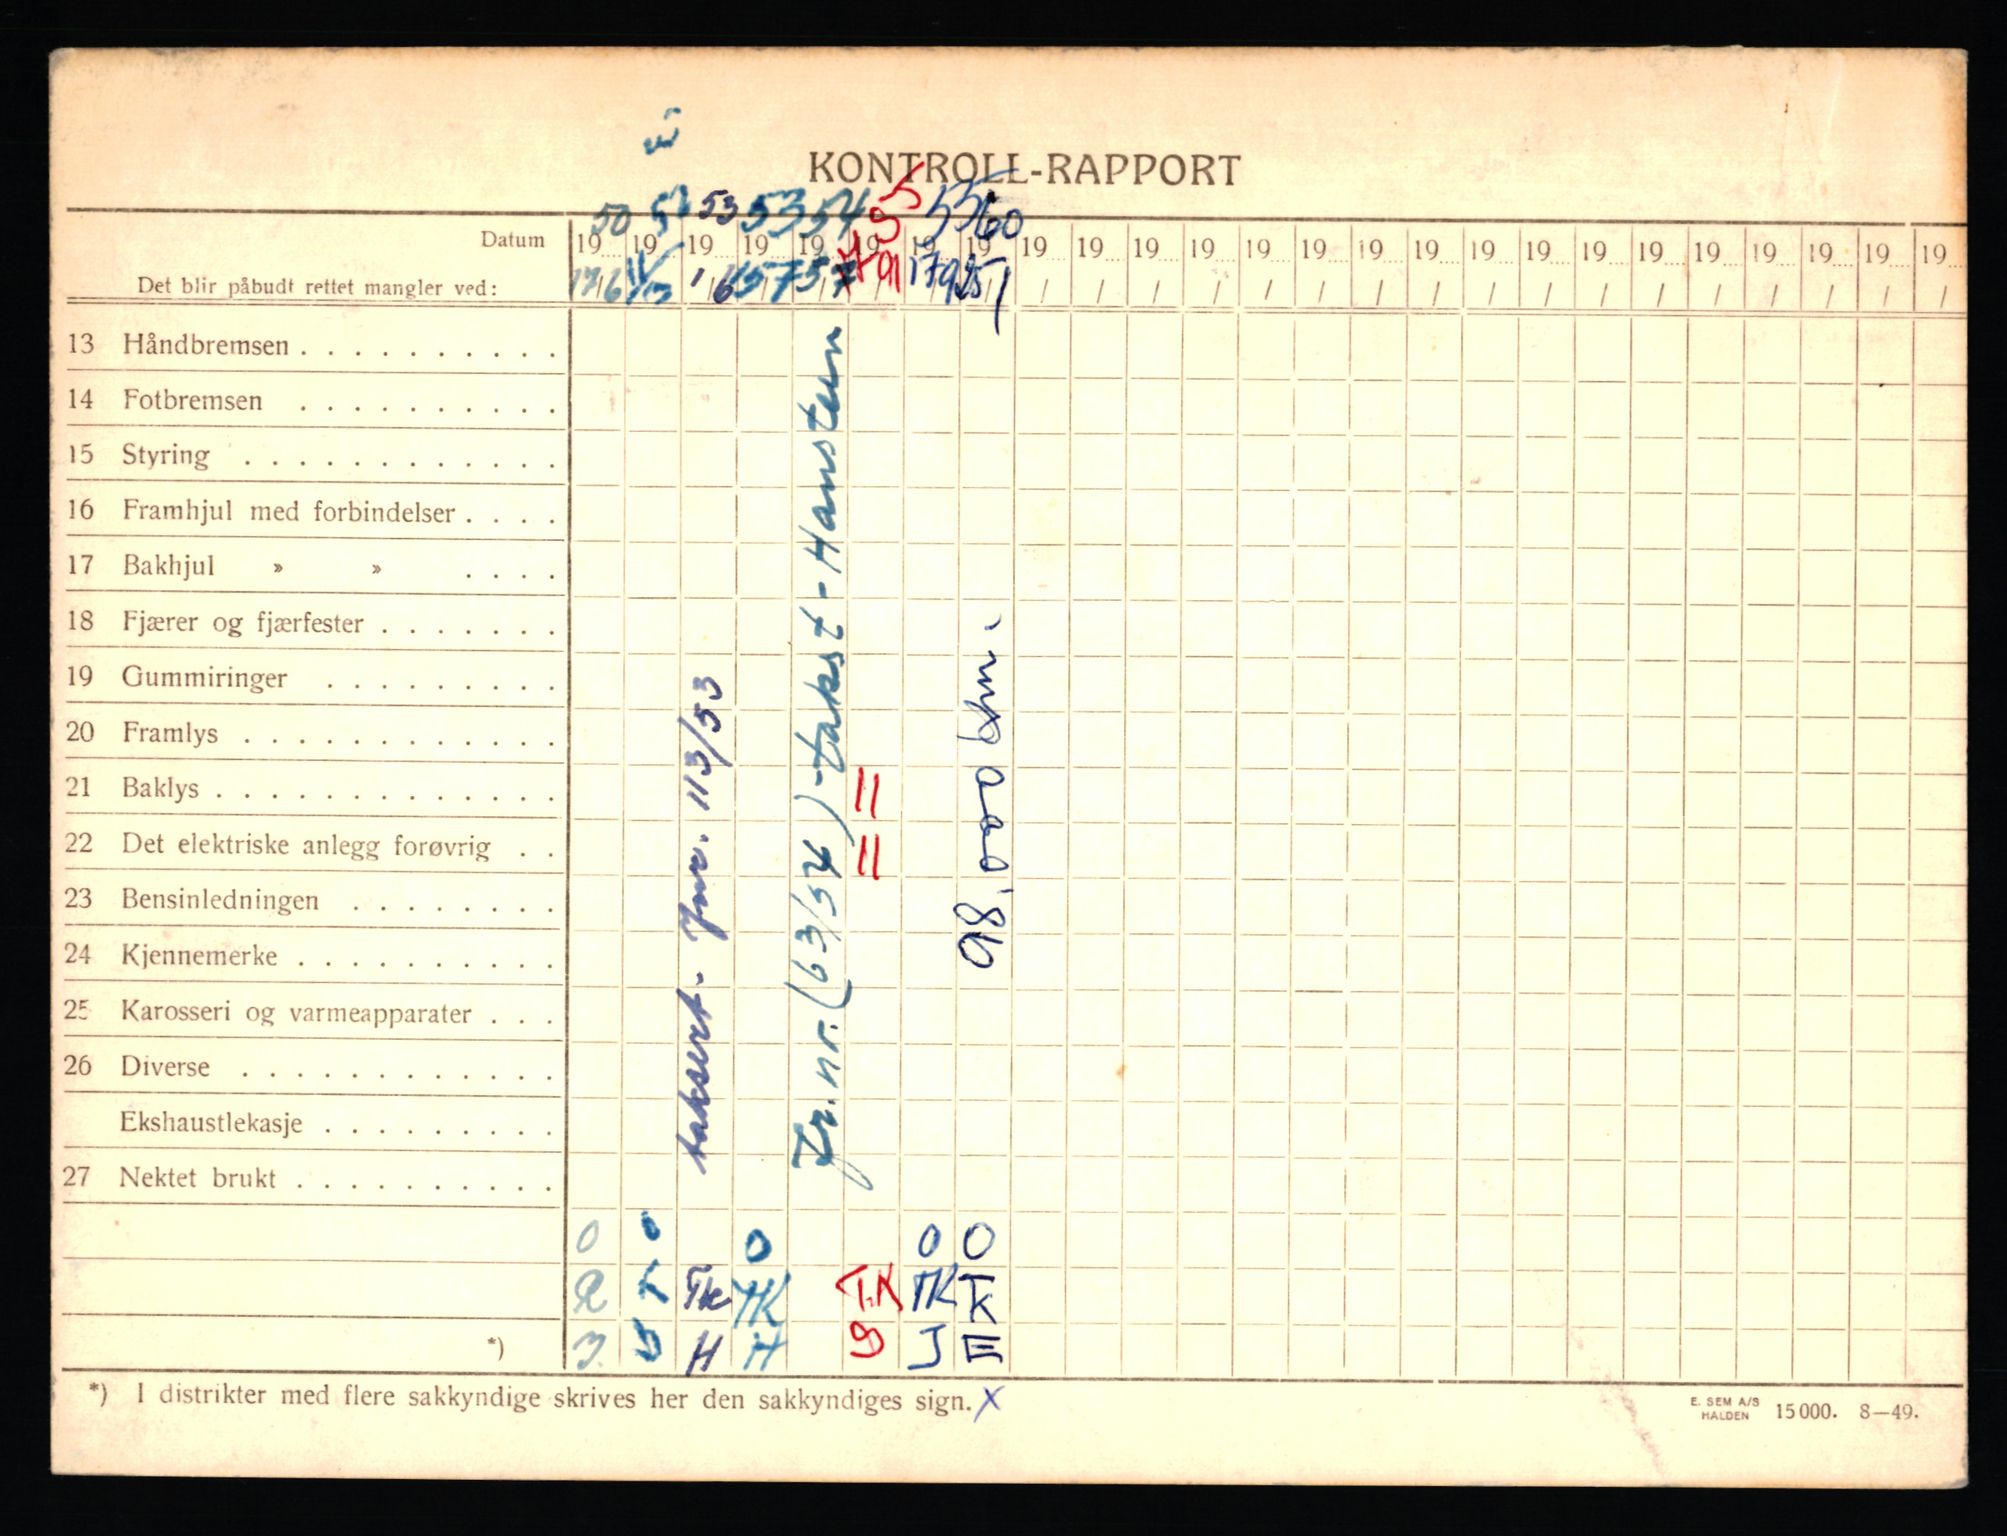 KONTROLL-RAPPORT
50 53 53 54 55 55 60
Datum 19 19 19 19 19 19 19 19 19 19 19 19 19 19 19 19 19 19 19 19 19 19 19 19 19
Det blir påbudt rettet mangler ved:
13 Håndbremsen
14 Fotbremsen
15 Styring
16 Framhjul med forbindelser
17 Bakhjul » »
18 Fjærer og fjærfester
19 Gummiringer
20 Framlys
21 Baklys
22 Det elektriske anlegg forøvrig
23 Bensinledningen
24 Kjennemerke
25 Karosseri og varmeapparater
26 Diverse
Ekshaustlekasje
27 Nektet brukt
taksert - Jnr. 113/53
Jr. nr. (63/54) - takst - Hansteen
= =
98.000 km.
0 0 0 0 0
R T TK TK T.K TK TK
H H J E
*)
*) I distrikter med flere sakkyndige skrives her den sakkyndiges sign. X
E. SEM A/S
HALDEN 15000. 8—49.